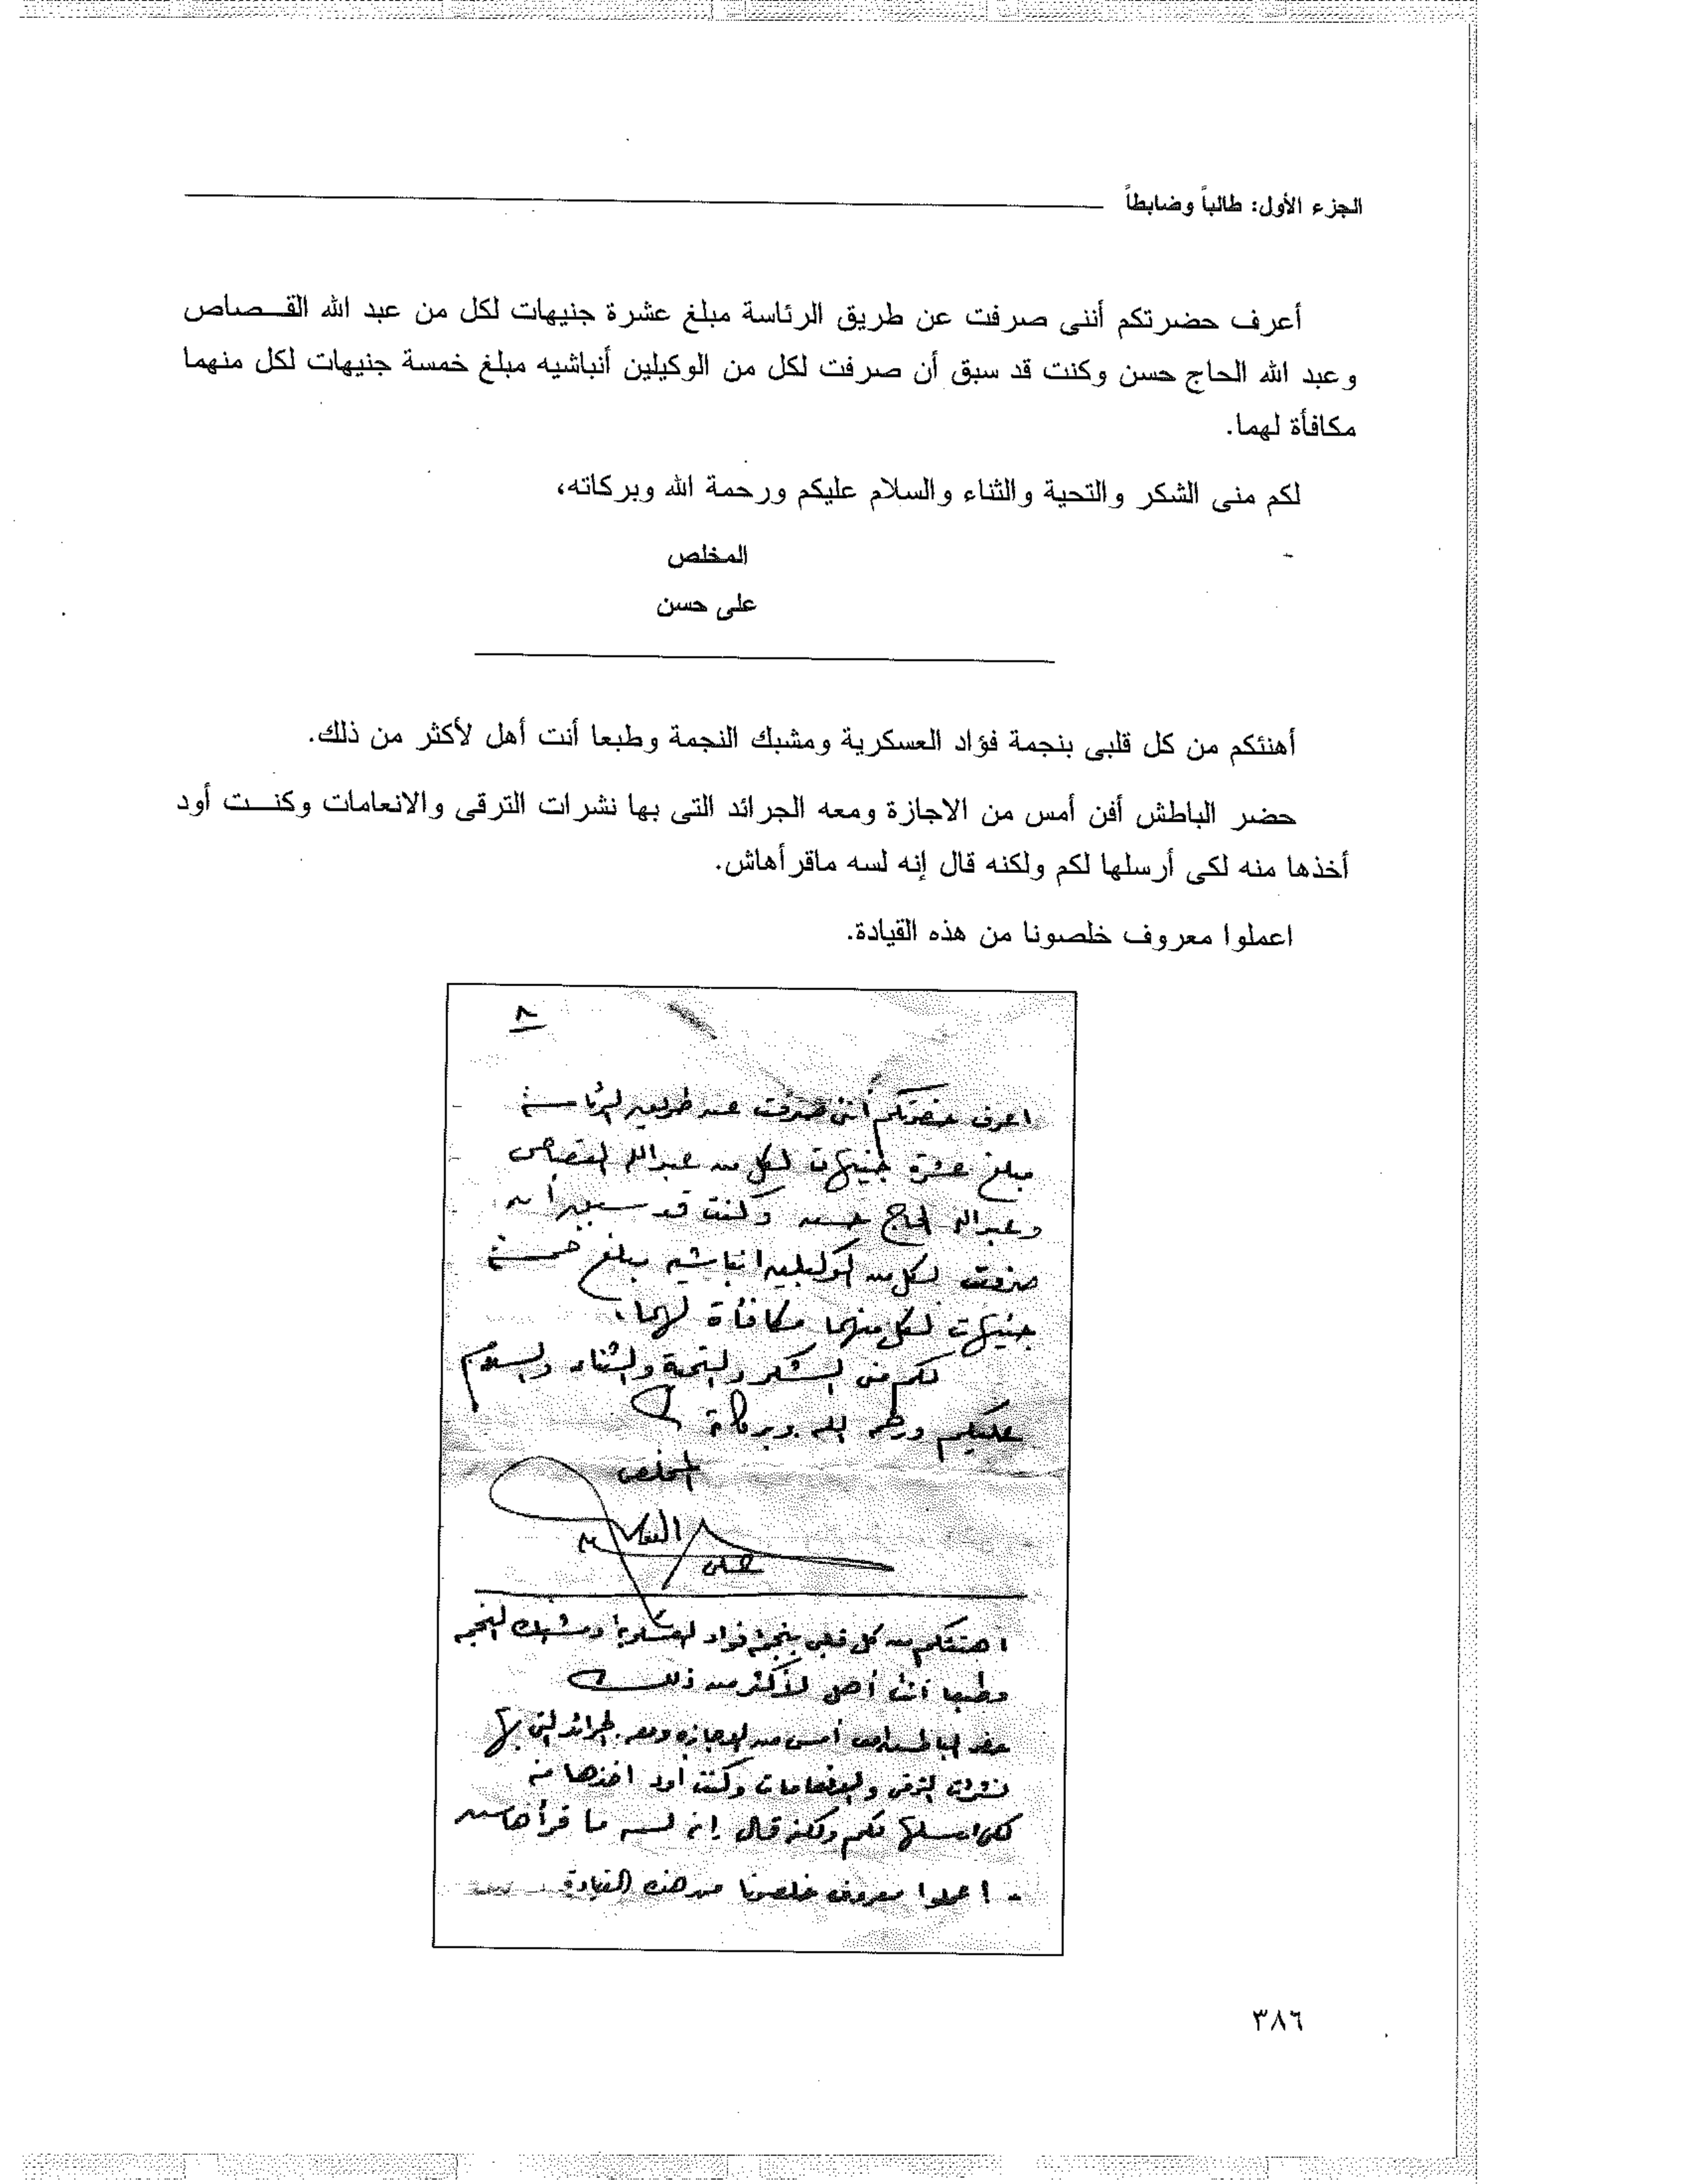 الجزء الأول: طالباً وضابطاً
أعرف حضرتكم أننى صرفت عن طريق الرئاسة مبلغ عشرة جنيهات لكل من عبد الله القـــصاص
وعبد الله الحاج حسن وكنت قد سبق أن صرفت لكل من الوكيلين أنباشيه مبلغ خمسة جنيهات لكل منهما
مكافأة لهما.
لكم منى الشكر والتحية والثناء والسلام عليكم ورحمة الله وبركاته،
المخلص
على حسن
أهنئكم من كل قلبى بنجمة فؤاد العسكرية ومشبك النجمة وطبعا أنت أهل لأكثر من ذلك.
حضر الباطش أفن أمس من الاجازة ومعه الجرائد التى بها نشرات الترقى والانعامات وكنـــت أود
أخذها منه لكى أرسلها لكم ولكنه قال إنه لسه ماقرأهاش.
اعملوا معروف خلصونا من هذه القيادة.
٨
اعرف حضرتكم أننى صرفت عن طريق الرئاسة
مبلغ عشرة جنيهات لكل من عبد الله القصاص
وعبد الله الحاج حسن وكنت قد سبق أن
صرفت لكل من الوكيلين انباشيه مبلغ خمسة
جنيهات لكل منهما مكافأة لهما.
لكم منى الشكر والتحية والثناء والسلام
عليكم ورحمة الله وبركاته
المخلص
على
اهنئكم من كل قلبى بنجمة فواد العسكرية ومشبك النجمة
وطبعا أنت أهل لأكثر من ذلك
حضر الباطش افن أمس من الاجازه ومعه الجرائد التى بها
نشرات الترقى والانعامات وكنت أود اخذها منه
لكى ارسلها لكم ولكنه قال إنه لسه ما قرأهاش
- اعملوا معروف خلصونا من هذه القيادة
٣٨٦